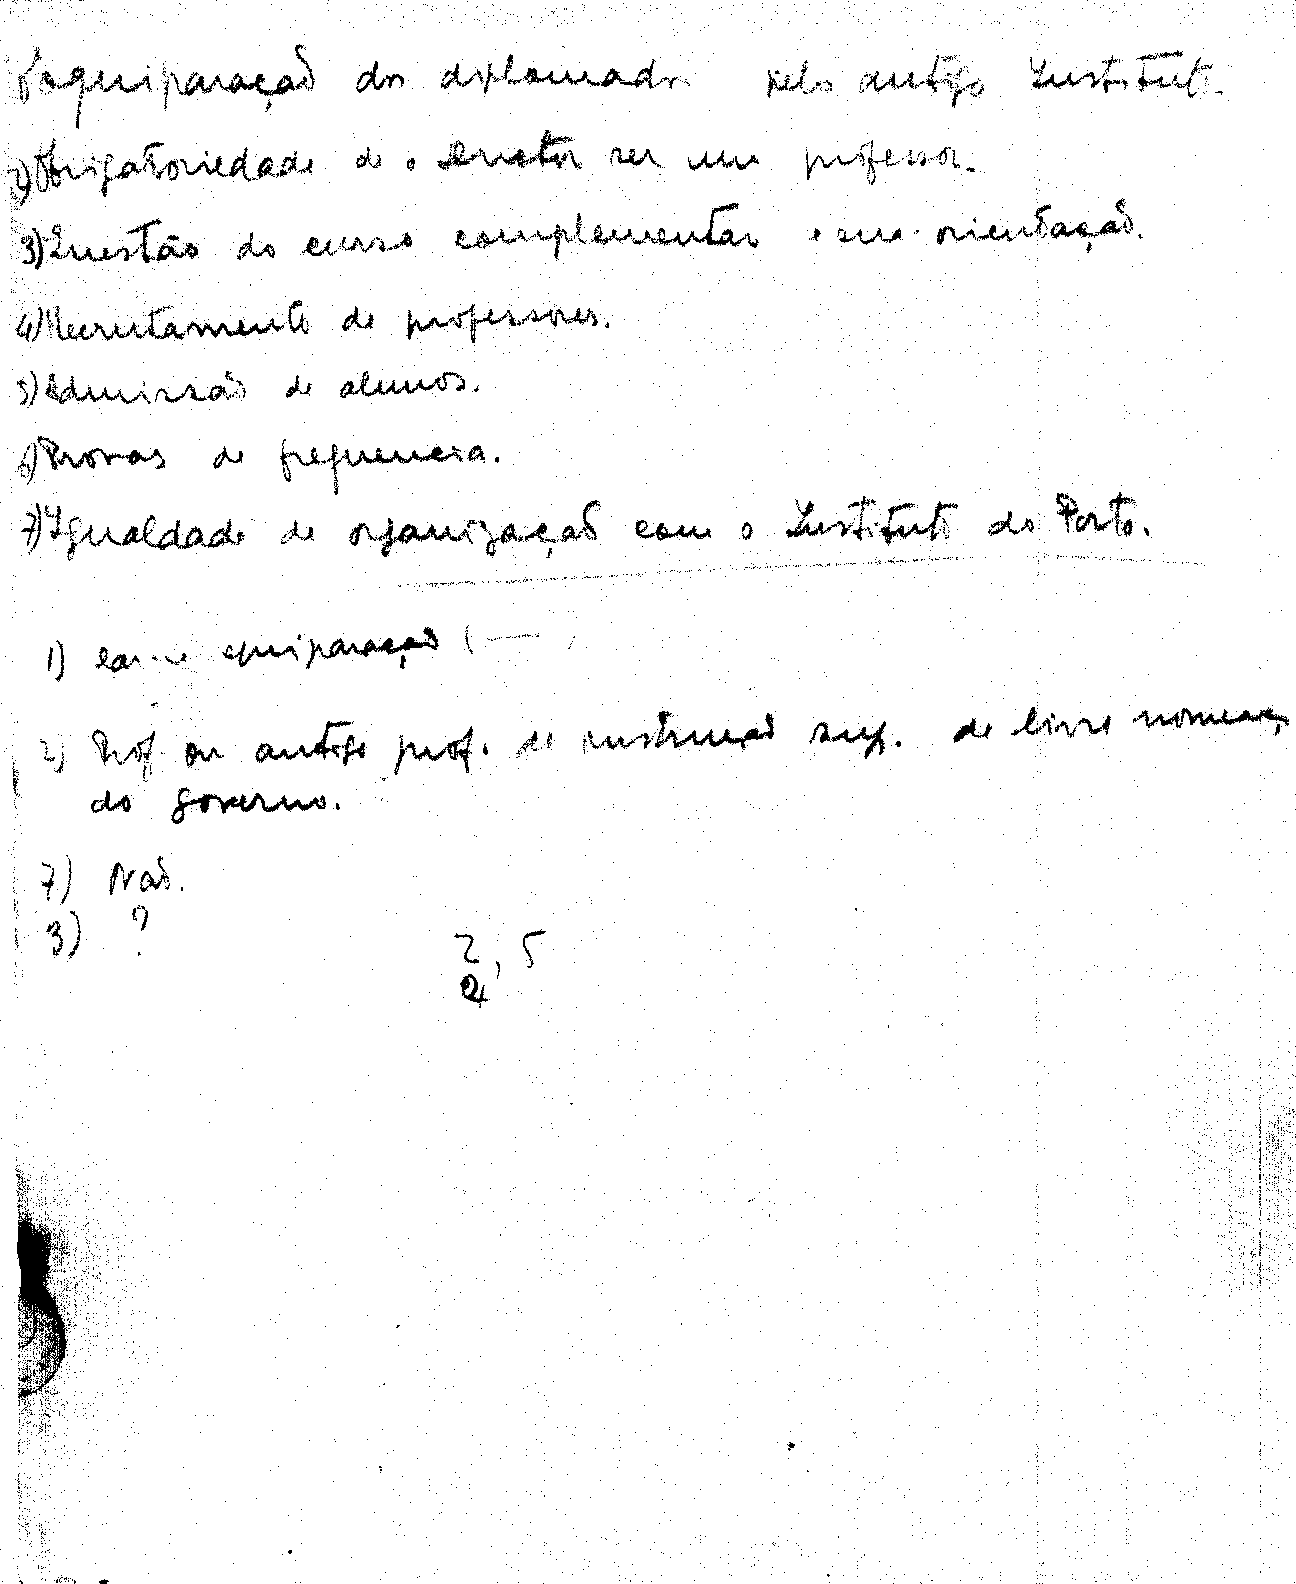 1) equiparação dos diplomados pelo antigo Instituto.
2) Obrigatoriedade de o Director ser um professor.
3) Questão do curso complementar e sua orientação.
4) Recrutamento de professores.
5) Admissão de alunos.
6) Provas de frequencia.
7) Igualdade de organização com o Instituto do Porto.
1) equiparação (—
2) Prof. ou antigo prof. de instrução sup. de livre nomeaç
do governo.
7) Não.
3) ?
2, 5